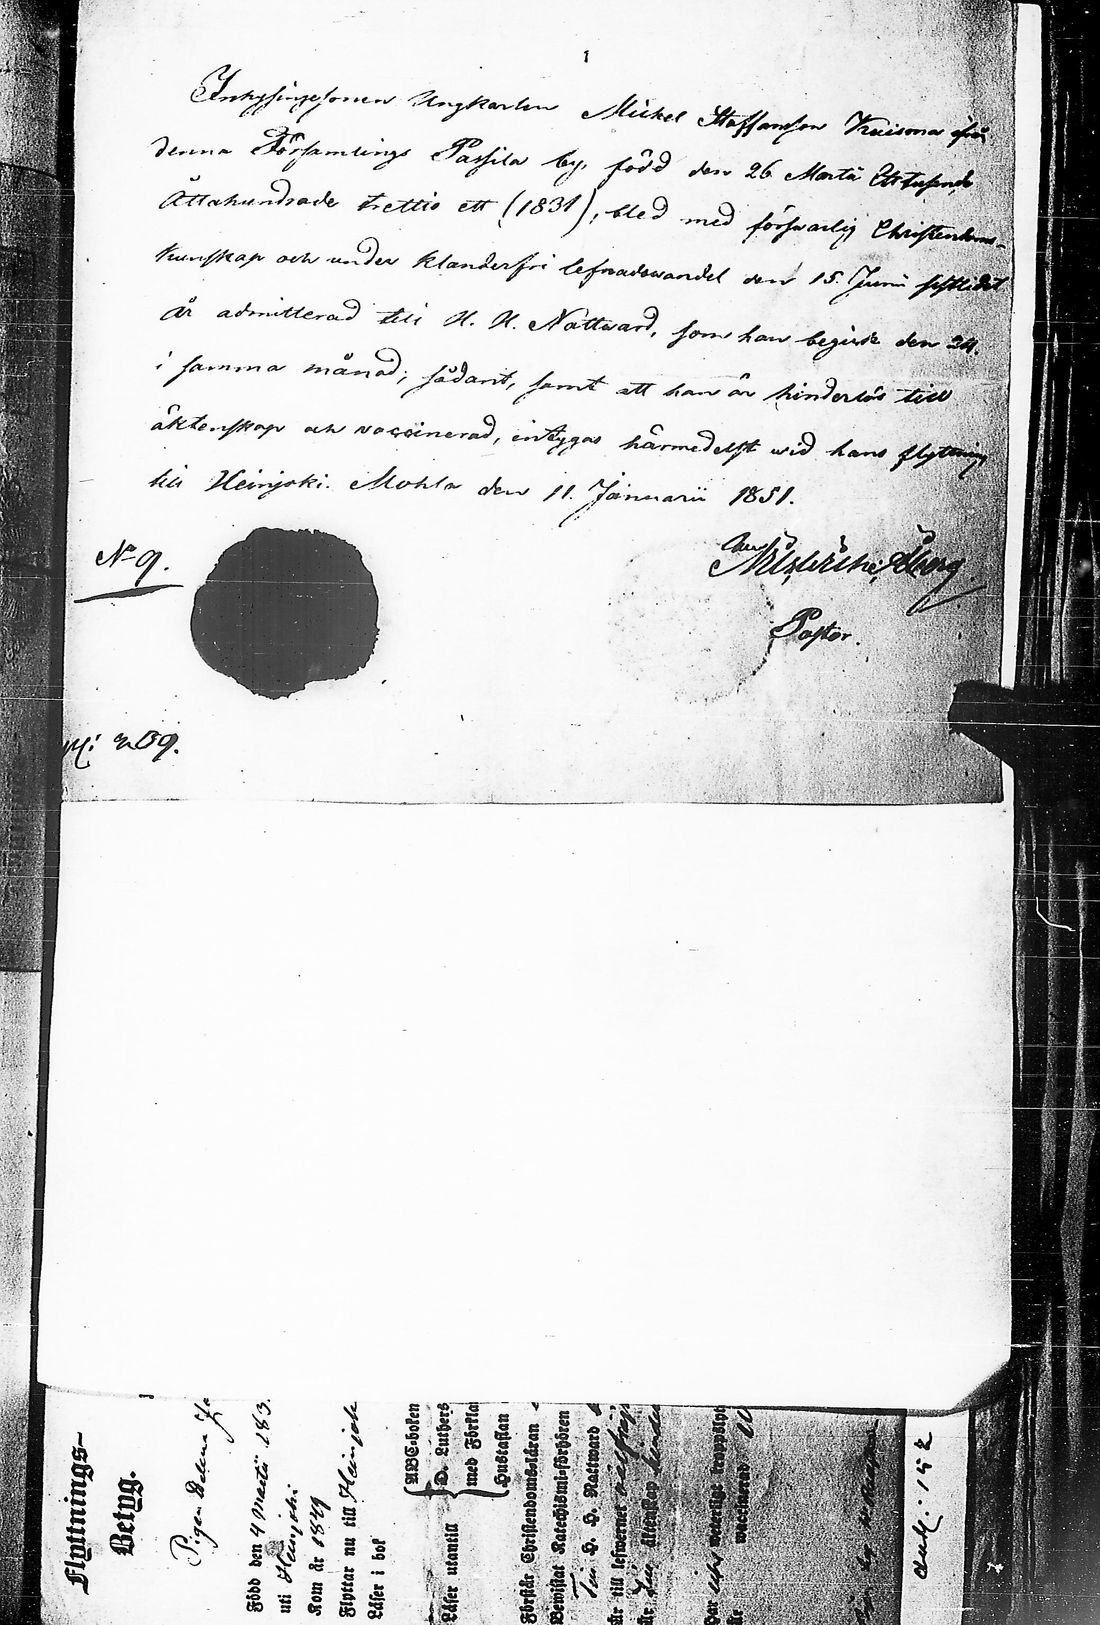 Inhysingesonen Ungkarlen Mickel Staffansson Kuisma från
denna Församlings Passila by, född den 26 Martii Ettusende
Åttahundrade trettio ett (1831), bled med förswarlig Christendoms-
kunskap och under klanderfri lefnadswandel den 15. Junii sistlidet
år admitterad till H. H. Nattward, som han begick den 24.
i samma månad; sådant, samt att han är hinderlös till
äktenskap och vaccinerad, intygas härmedelst wid hans flyttning
till Heinjoki. Mohla den 11. Januarii 1851.
No 9.
Pastor.
Flyttnings-
Betyg.
Pigan Helena
Född den 4 Martii 183
uti Heinjoki
Kom år 1849
Flyttar nu till Heinjoki
Läser i bok
Läser utantill
ABC-boken
D. Luthers
med Förkla
Hustaflan
Förstår Christendomsläran
Bewistat Katechismi-förhören
H. H. Nattward
är till lefwernet
är äktenskap
Har wederlige kroppslyt
är waccinerad